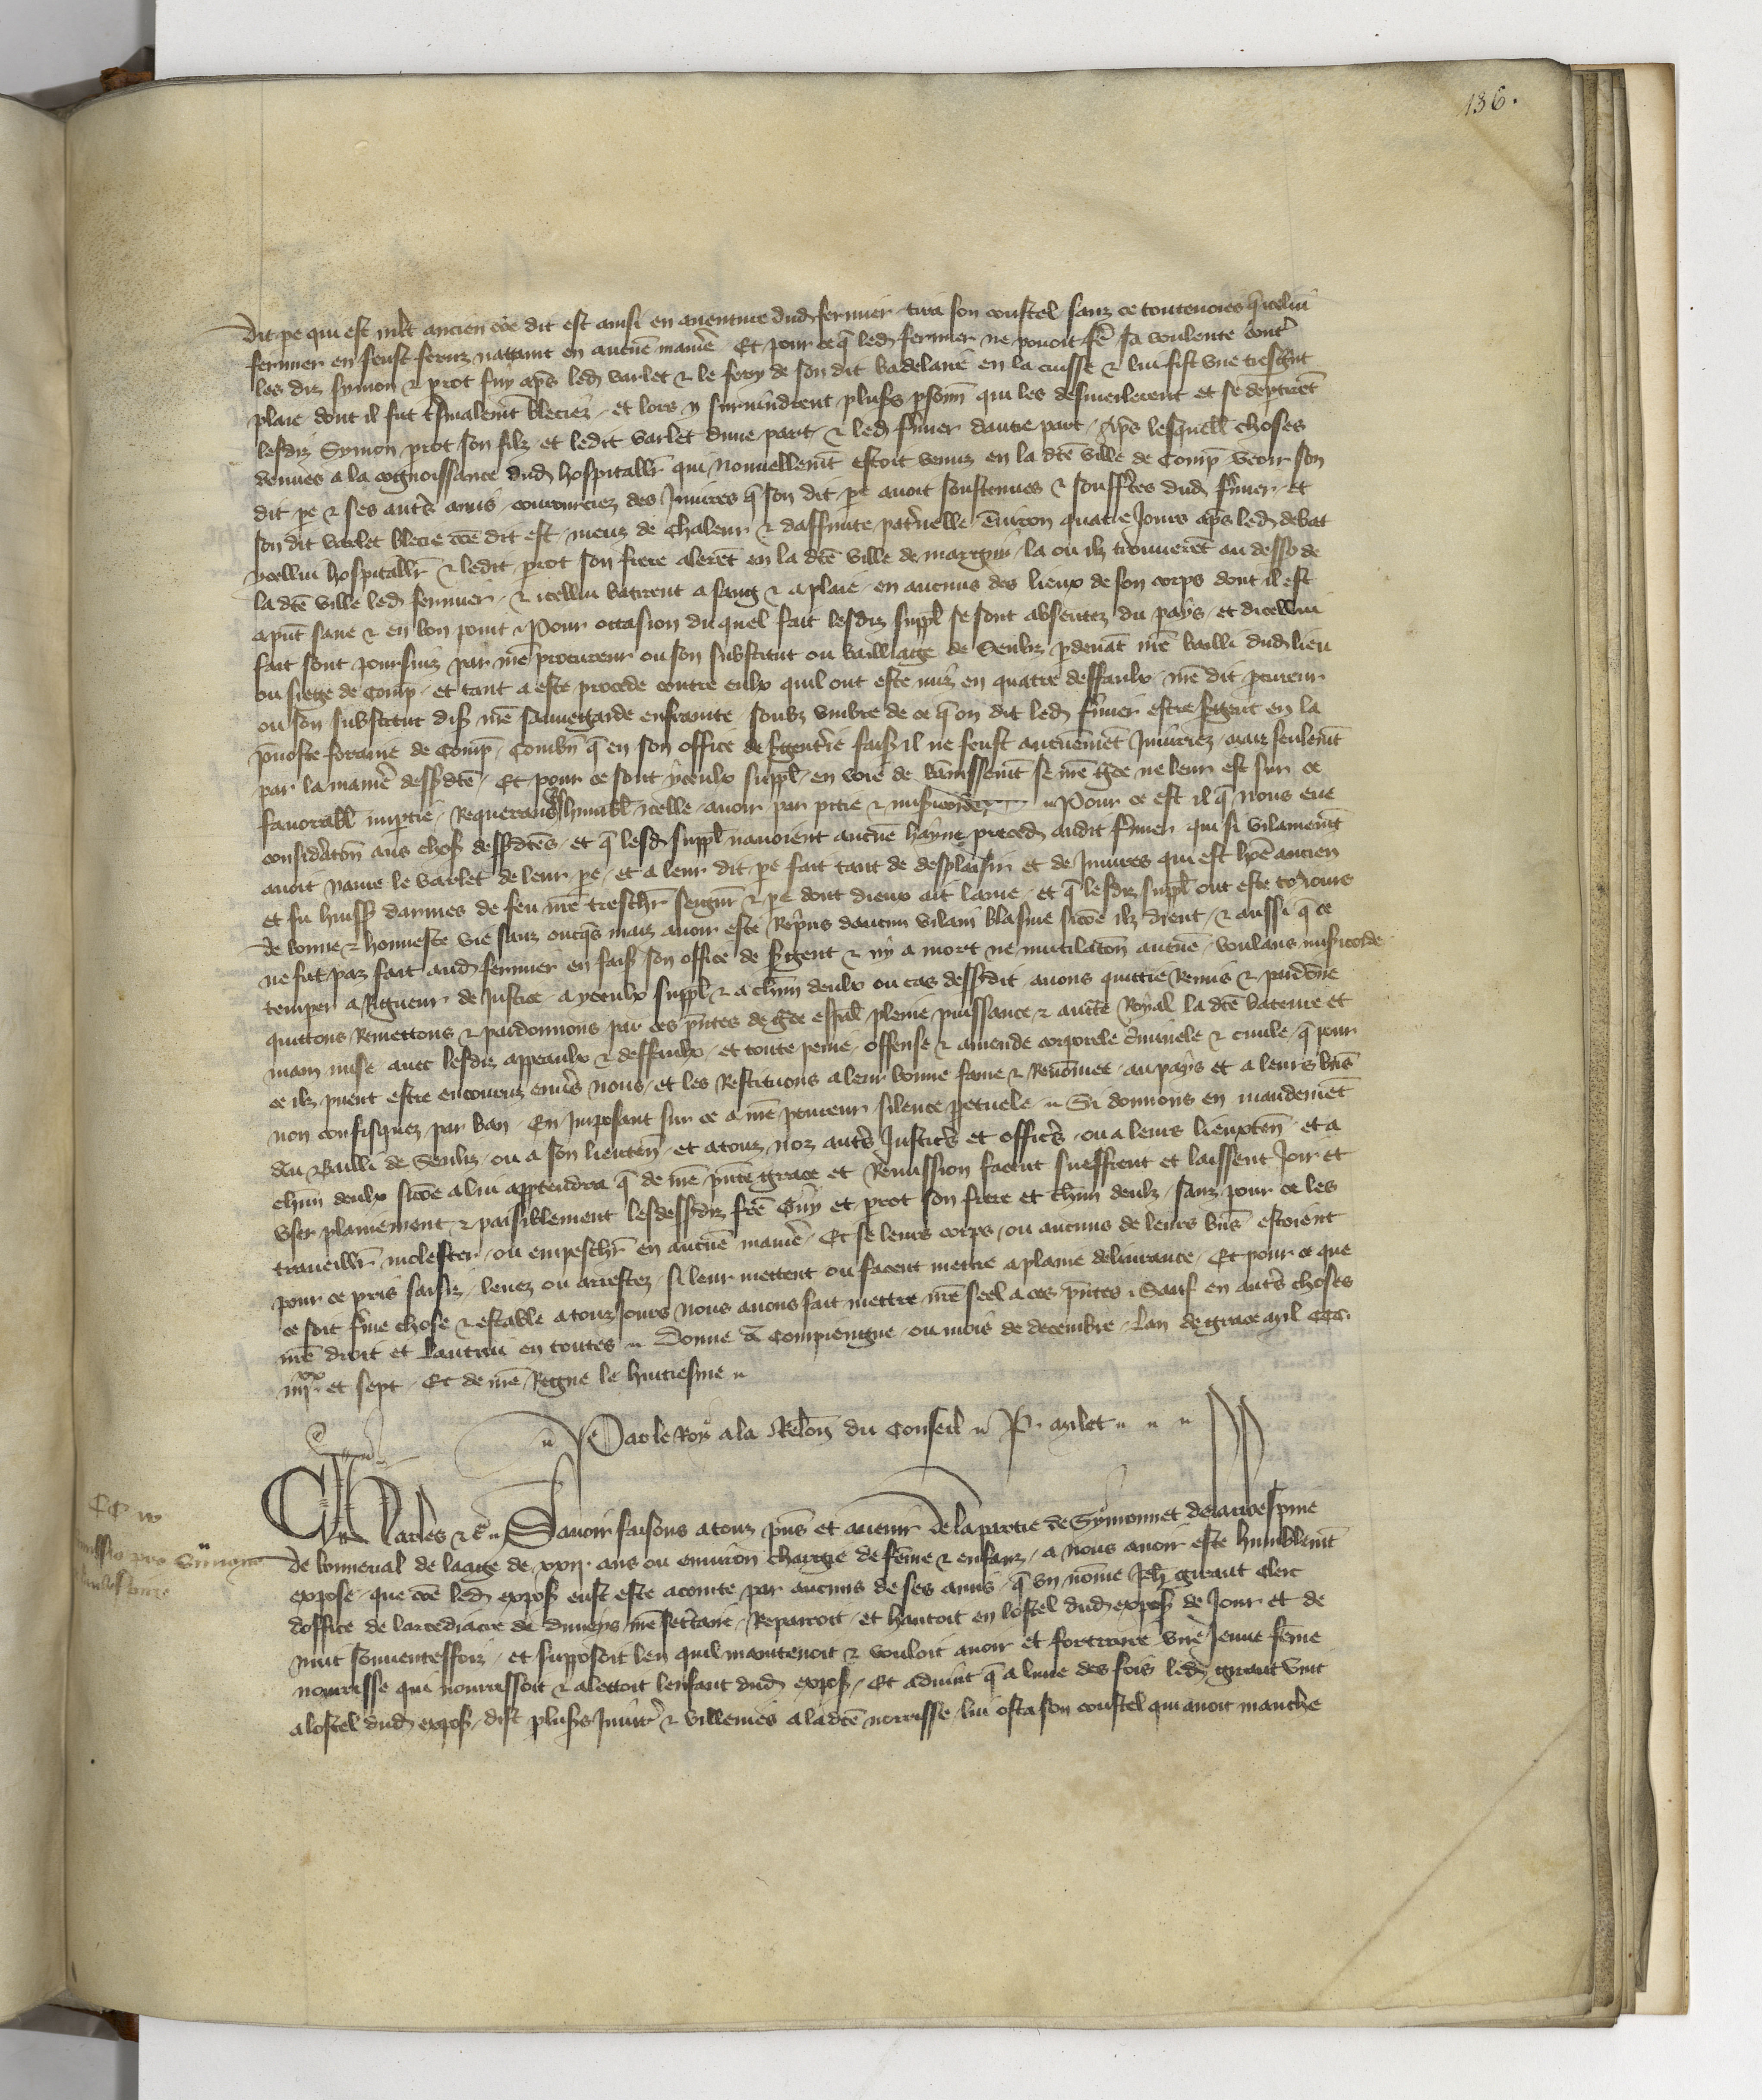 136.
dit pe qui est mlt ancien cõe dit est ainsi en aventure dud fermier tira son coustel sanz ce toutevoies q icelui
fermier en feust feruz nattaint en aucuñe maniere Et pour ce q led fermier ne povoit fe sa voulente contr
les diz Symon & prot suy aps led varlet & le fery de son dit badelaire en la cuisse & lui fist une tresgnt
plaie dont il fut tsmalemt bleciez et lors y survindrent plusrs psonn qui les desmeslerent et se deptirẽt
lesdiz Symon prot son filz et ledit varlet dune part & led fmier dautre part Aps lesquell choses
venues a la cognoissance dud hospitallr qui nouvellemt estoit venuz en la dte ville de Comp veoir son
dit pe & ses auts amis courrouciez des Injures q son dit pe avoit soustenues & souffertes dud fmier et
son dit varlet blecie cõe dit est meuz de chaleur & daffinite patnelle environ quatre Jours aps led debat
ycellui hospitallr & ledit prot son frere alerẽt en la dte ville de margny la ou ilz trouverẽt au dessoz de
la dte ville led fermier & icellui batirent a sang & a plaie en aucuns des lieux de son corps dont il est
a pnt sane & en bon point Pour occasion duquel fait lesdiz suppl se sont absentez du pays et dicellui
fait sont poursuiz par nre procureur ou son substitut ou bailliage de Senliz pdevãt nre bailli dud lieu
ou siege de Comp et tant a este procede contre eulx quil ont este mis en quatre deffaulx nre dit pcureur
ou son substitut dis nre sauvegarde enfrainte soubz umbre de ce q on dit led fmier estre sgent en la
pvoste foraine de Comp Combn q en son office de sgenterie fais il ne feust aucunemẽt Injuriez maiz seulemt
par la maniere dessdte Et pour ce sont yceulx suppl en voie de banissemt se nre gce ne leur est sur ce
favorabl impartie Requerans humbl icelle avoir par pitie & misericorde Pour ce est il q nous eue
consideraton aus chos dessdtes et q lesd suppl navoient aucune hayne preced audit fmier qui si vilainemt
avoit navre le varlet de leur pe et a leur dit pe fait tant de desplaisir et de Injures qui est hõe ancien
et fu huiss darmes de feu nre treschr seigneur & pe dont dieux ait lame et q lesdiz suppl ont este touzjours
de bonne & honneste vie sanz oncqs mais avoir este Repris daucun vilain blasme sicõe ilz dient & aussi q ce
ne fut paz fait aud fermier en fais son office de sgent & ny a mort ne mutilaton aucune voulans misericorde
temper a Rigueur de Justice a yceulx suppl & a chũn deulx ou cas dessdit avons quittie Remis & pardone
quittons Remettons & pardonnons par ces pntes de gce espal pleine puissance & aucte Royal la dte bateure et
main mise avec lesdiz appeaulx & deffaulx et toute peine offense & amende corporele cminele & civile q pour
ce ilz puent estre encouruz envers nous et les Restituons a leur bonne fame & Renomee au pays et a leurs bns
non confisquez par ban En Imposant sur ce a nre pcureur silence ppetuele Si donnons en mandemẽt
au Bailli de Senliz ou a son lieuten et a touz noz auts Justiciers et officiers ou a leurs lieuxten et a
chũn deulx sicõe a lui apptendra q de nre pnte grace et Remission facent sueffrent et laissent Joir et
user plainement & paisiblement lesdessdiz fre Guy et prot son frere et chũn deulz sanz pour ce les
traveillr molester ou empeschr en aucune maniere Et se leurs corps ou aucuns de leurs bns estoient
pour ce pris saisiz levez ou arrestez si leur mettent ou facent mettre a plaine delivrance Et pour ce que
ce soit fme chose & estable a touz Jours nous avons fait mettre nre seel a ces pntes Sauf en auts choses
nre droit et lautrui en toutes Donne a Compiengne ou mois de decembre lan de grace mil CCC
iiijxx et sept Et de nre Regne le huitiesme
Par le Roy a la Relon du Conseil P. Milet
CCiij
Remissio pro Simoneto
de lauvespine
Charles &c Savoir faisons a touz pns et avenir De la partie de Symonnet de lauvespine
de bonneval de laage de xxij ans ou environ chargie de feme & enfanz a nous avoir este humblemt
expose que cõe led expos eust este acointe par aucuns de ses amis q un nomme Jeh giraut clerc
doffice de larcediacre de dunoys nre secretaire Reparoit et hantoit en lostel dud expos de Jour et de
nuit souventeffoiz et supposoit len quil maintenoit & vouloit avoir et fortraire une Jeune feme
nourrisse qui nourrissoit & alettoit lenfant dud expos Et advint q a lune des fois led giraut vint
a lostel dud expos dist plusrs Injur & villenies a la dte norrisse lui osta son coustel qui avoit manche